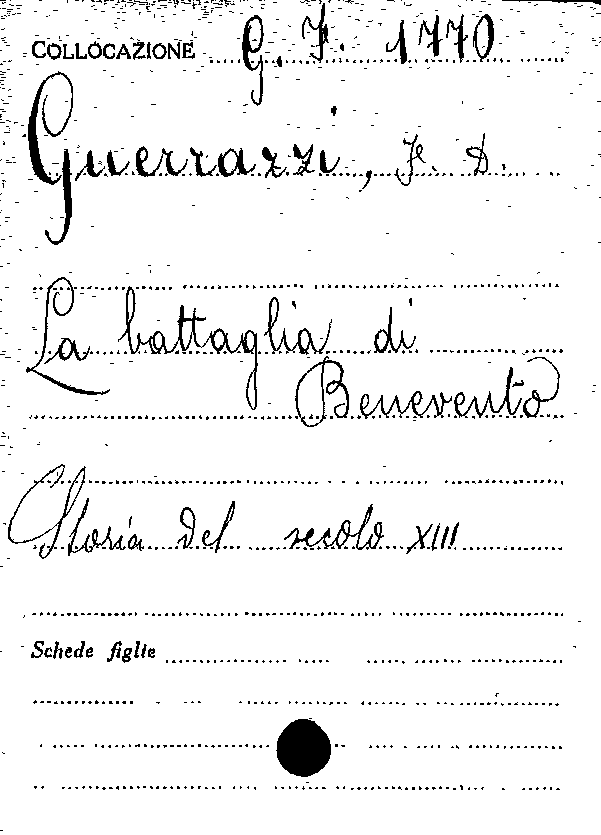 COLLOCAZIONE G. F. 1770
Guerrazzi, F. D.
La battaglia di
Benevento
Storia del secolo XIII
Schede figlie